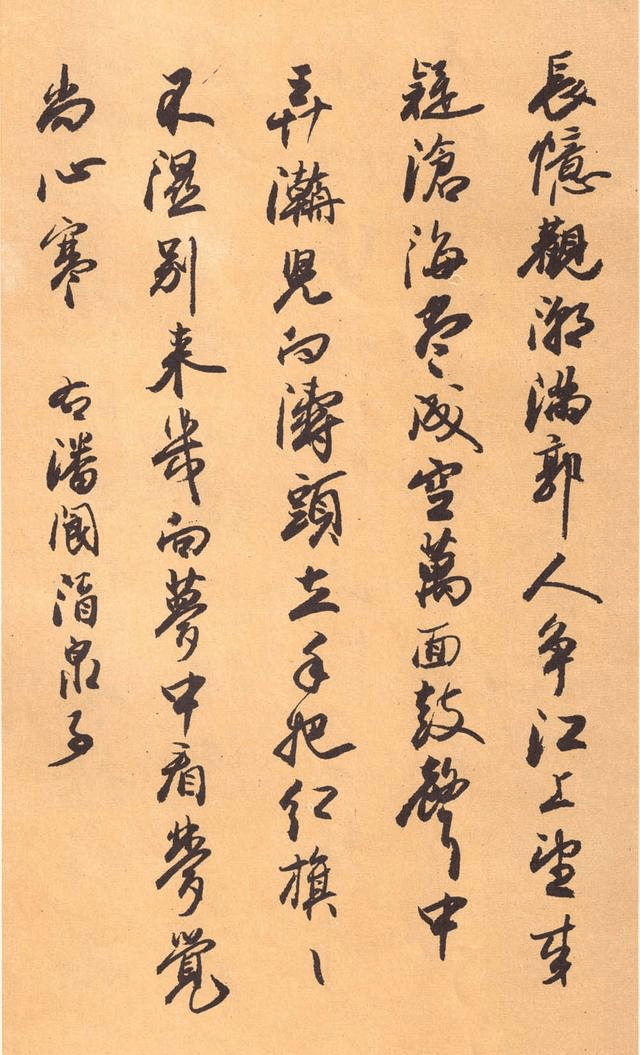 長憶觀潮滿郭人爭江上望来
疑滄海盡成空萬面鼓聲中
弄潮兒向濤頭立手把紅旗〻
不濕别来幾向夢中看夢覺
尚心寒 右潘閬酒泉子